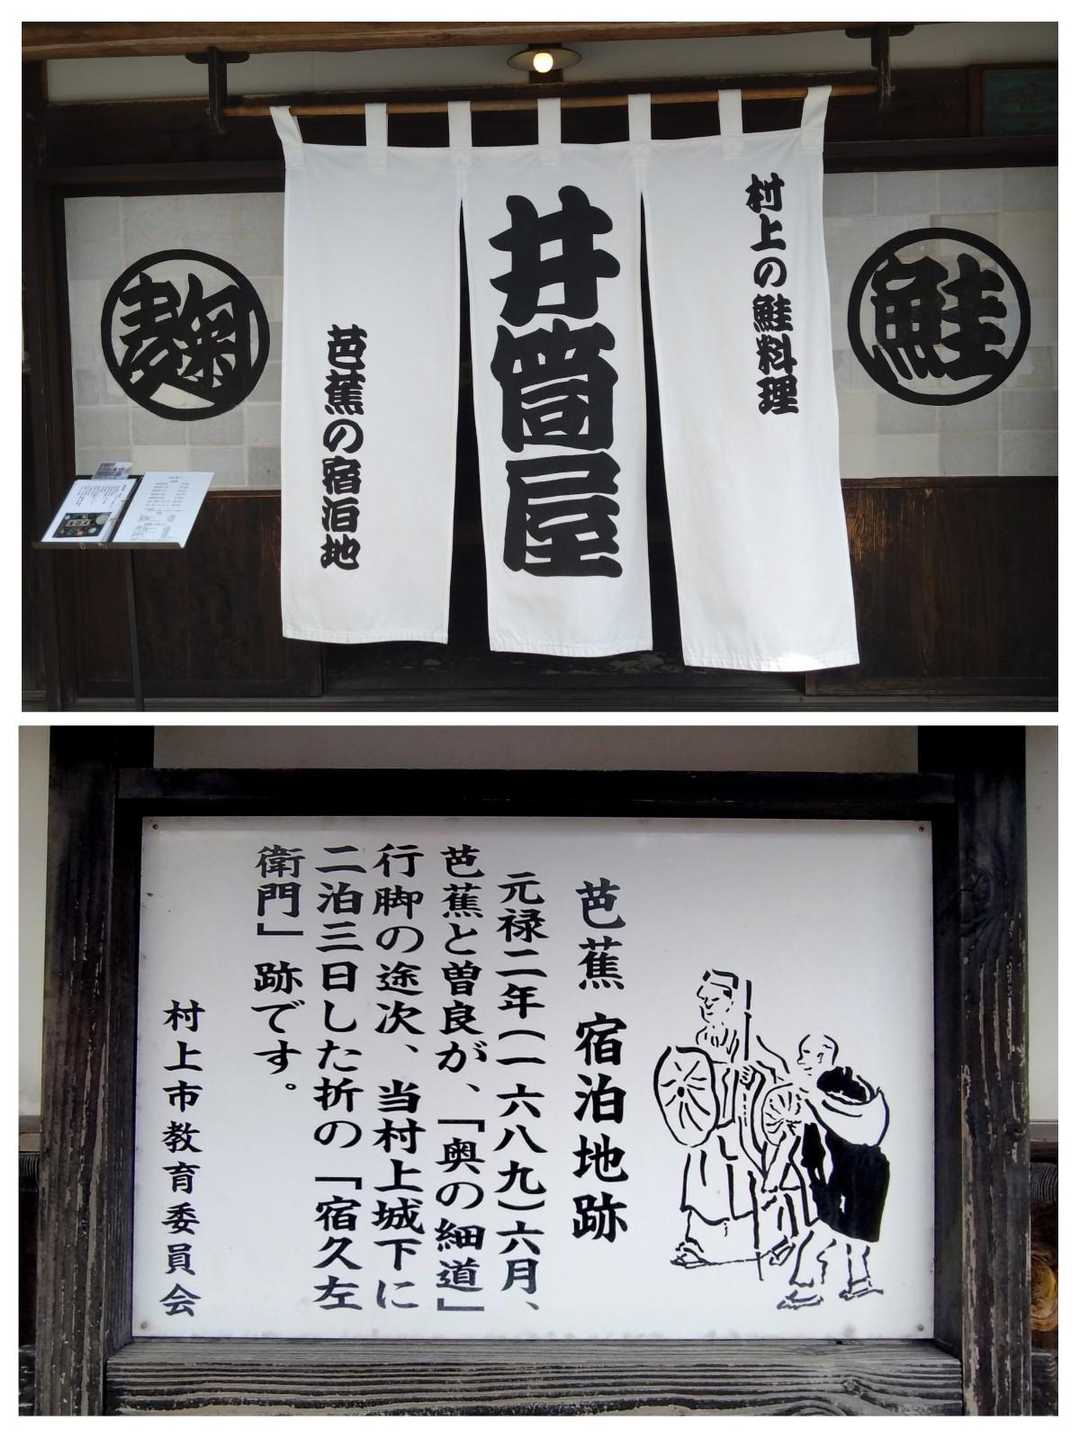 鮭
村上の鮭料理
井筒屋
芭蕉の宿泊地
麹
芭蕉 宿泊地跡
元禄二年(一六八九)六月、
芭蕉と曽良が、「奥の細道」
行脚の途次、当村上城下に
二泊三日した折の「宿久左
衛門」跡です。
村上市教育委員会